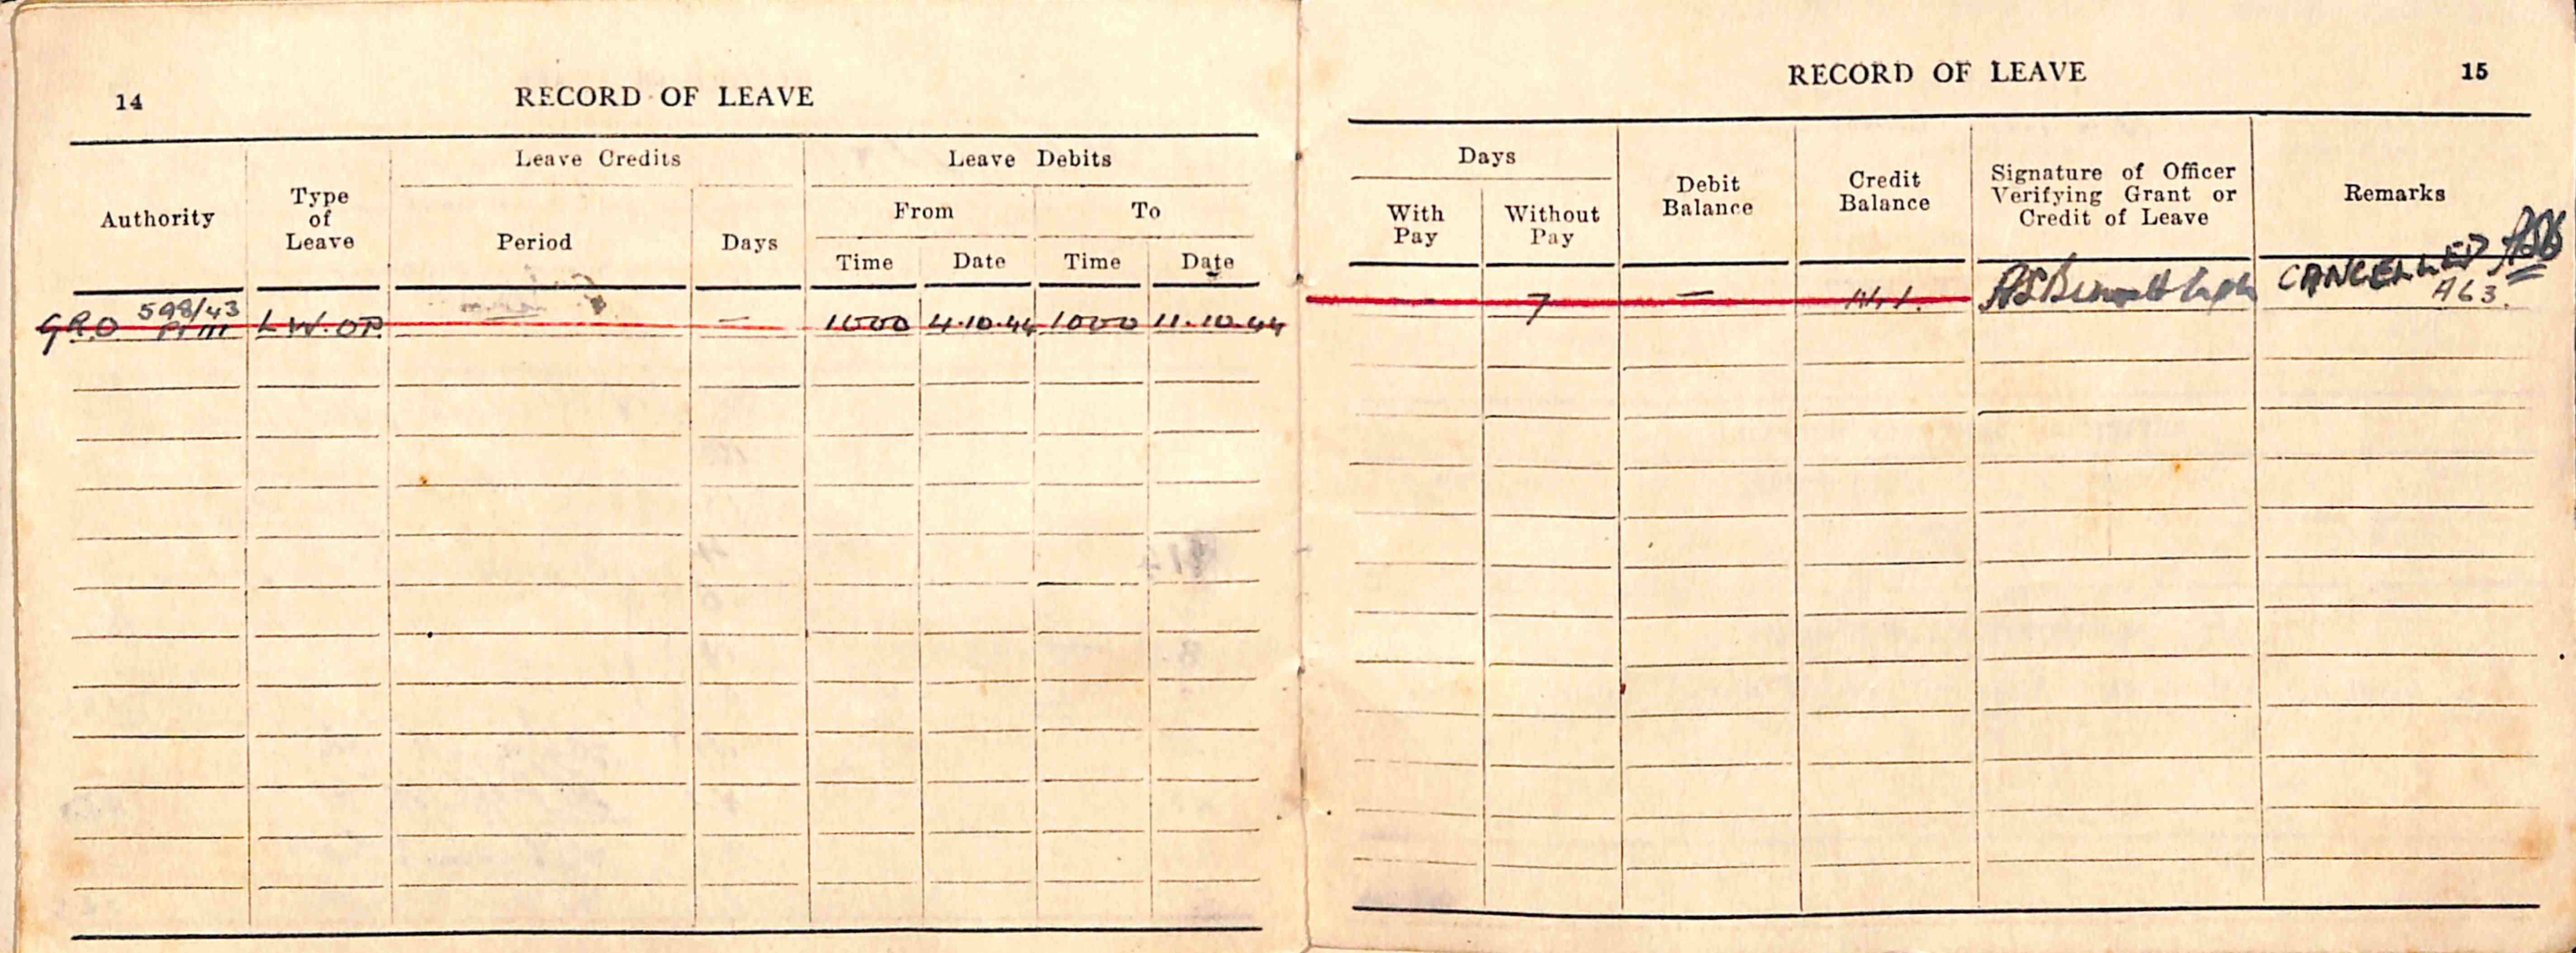 14
RECORD OF LEAVE
Authority
Type
of
Leave
Leave Credits
Period
Days
Leave Debits
From
To
Time
Date
Time
Date
598/43
GRO Pt III
L.W.O.P.
—
1000
4.10.44
1000
11.10.44
RECORD OF LEAVE
15
Days
With
Pay
Without
Pay
Debit
Balance
Credit
Balance
Signature of Officer
Verifying Grant or
Credit of Leave
Remarks
—
7
—
CANCELLED
A63.